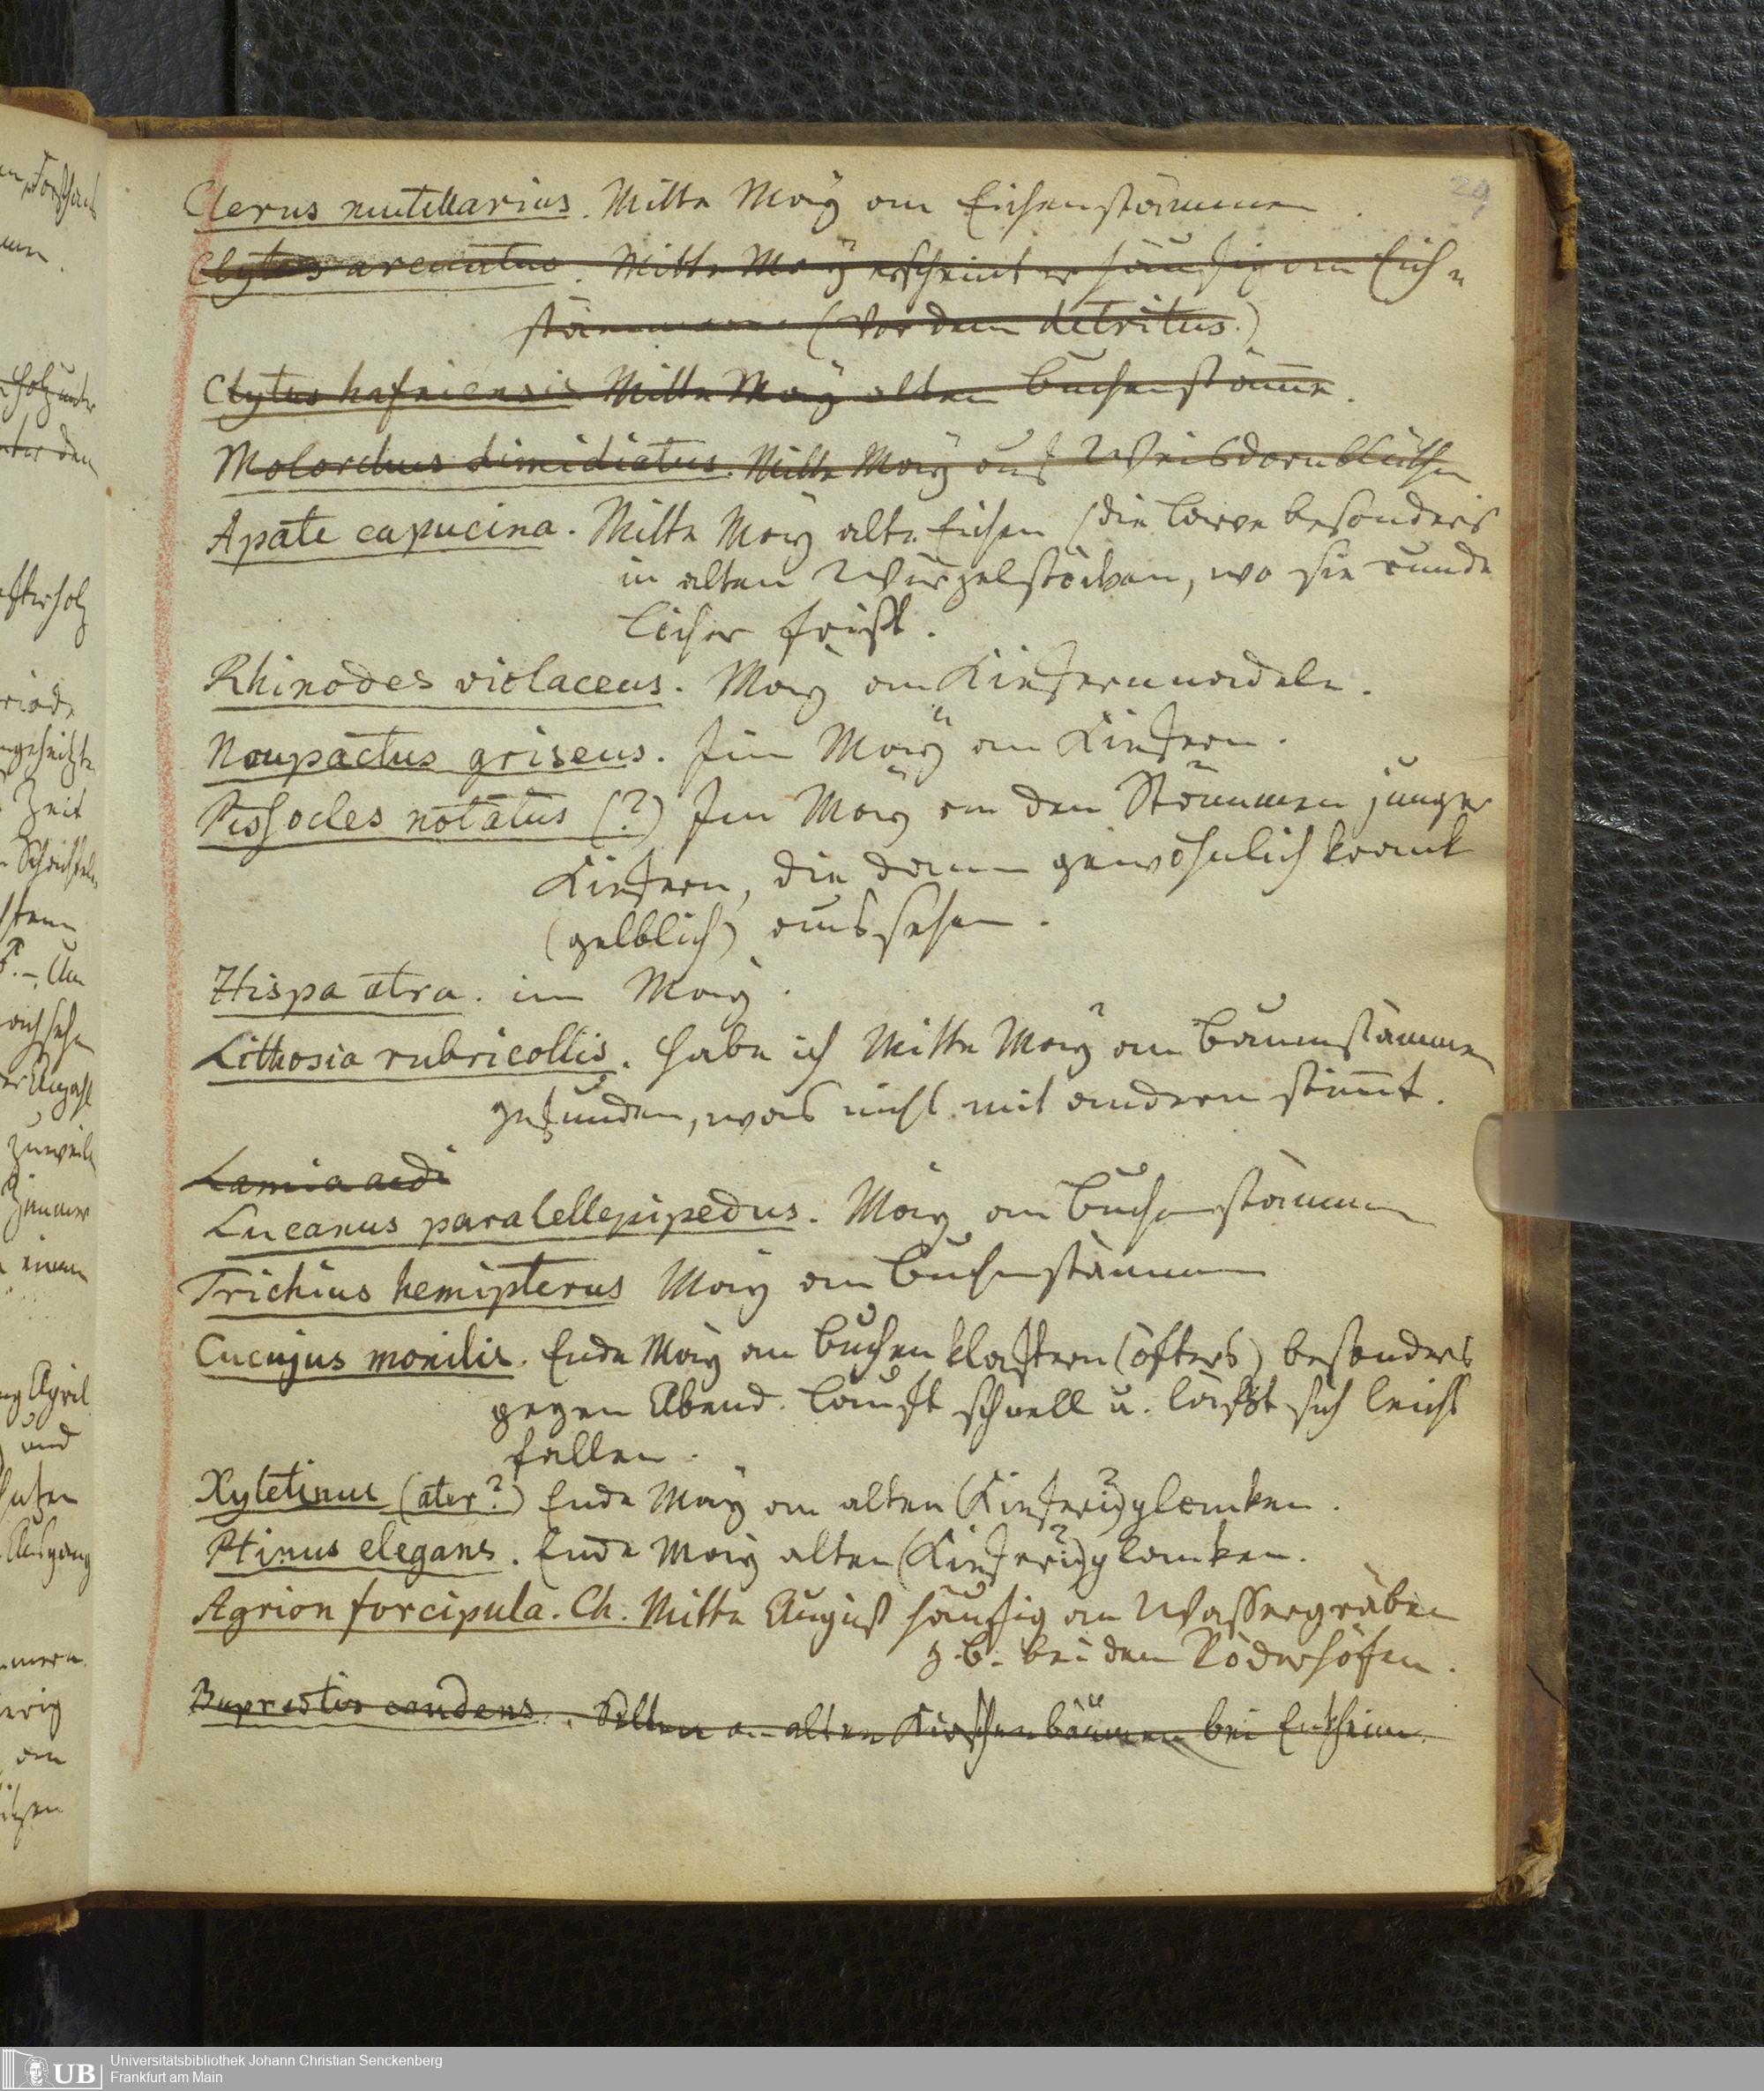 29
Clerus mutillarius. Mitte May an Eichenstämmen.
Clytus arcuatus. Mitte May erscheint er häufig am Eich=
stämmen (Vor dem detritus.)
Clytus hafniensis Mitte May alten Buchenstäm̅e.
Molorchus dimidiatus. Mitte May auf Weisdornblüthen
Apate capucina. Mitte May alte Eichen (die Larve besonders
in alten Wurzelstöcken, wo sie runde
Löcher frißt.
Rhinodes violaceus. May an Kiefernnadeln.
Naupactus griseus. Im May an Kiefern.
Pissodes notatus (?) Im May an den Stämmen junger
Kiefern, die dann gewöhnlich krank
(gelblich) aussehen.
Hispa atra. im May.
Lithosia rubricollis. Habe ich Mitte May an Baumstämmen
gefunden, was nicht mit andern stim̅t.
Lamia aedi
Lucanus paralellepipedus. May an Buchenstämmen
Trichius hemipterus May an Buchenstämmen
Cucujus monilis. Ende May an Buchenklaftern (öfters) besonders
gegen Abend. Lauft schnell u. läßt sich leicht
fallen.
Xyletinus (ater?) Ende May an alten (Kiefern?) planken.
Ptinus elegans. Ende May alten (Kiefern?) planken.
Agrion forcipula. Ch. Mitte August häufig an Wassergräben
z. B. bei den Röderhöfen.
Buprestis candens. Selten an alten Kirschenbäumen bei Enkheim.
Universitätsbibliothek Johann Christian Senckenberg
Frankfurt am Main
UB